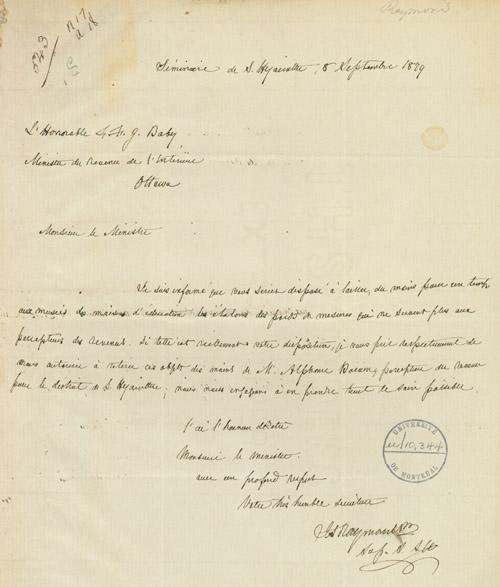 Raymond
R 17
a 18
543
Séminaire de S. Hyacinthe, 8 Septembre 1879
L'Honorable L. F. G. Baby,
Ministre du Revenu de l'Intérieur
Ottawa
Monsieur le Ministre
Je suis informé que vous seriez disposé à laisser, du moins pour un temps
aux musées des maisons d'éducation les étalons des poids et mesures qui ne servent plus aux
percepteurs du revenu. Si telle est réellement votre disposition, je vous prie respectueusement de
nous autoriser à retirer ces objets des mains de M. Alphonse percepteur du revenu
pour le district de S. Hyacinthe; nous nous engageons à en prendre tout le soin possible.
J'ai l'honneur d'être
Monsieur le Ministre
avec un profond respect
Votre très humble serviteur
J. S. Raymond Ptre
Sup. S. S. H.
UNIVERSITÉ
u/10,344
DE MONTREAL